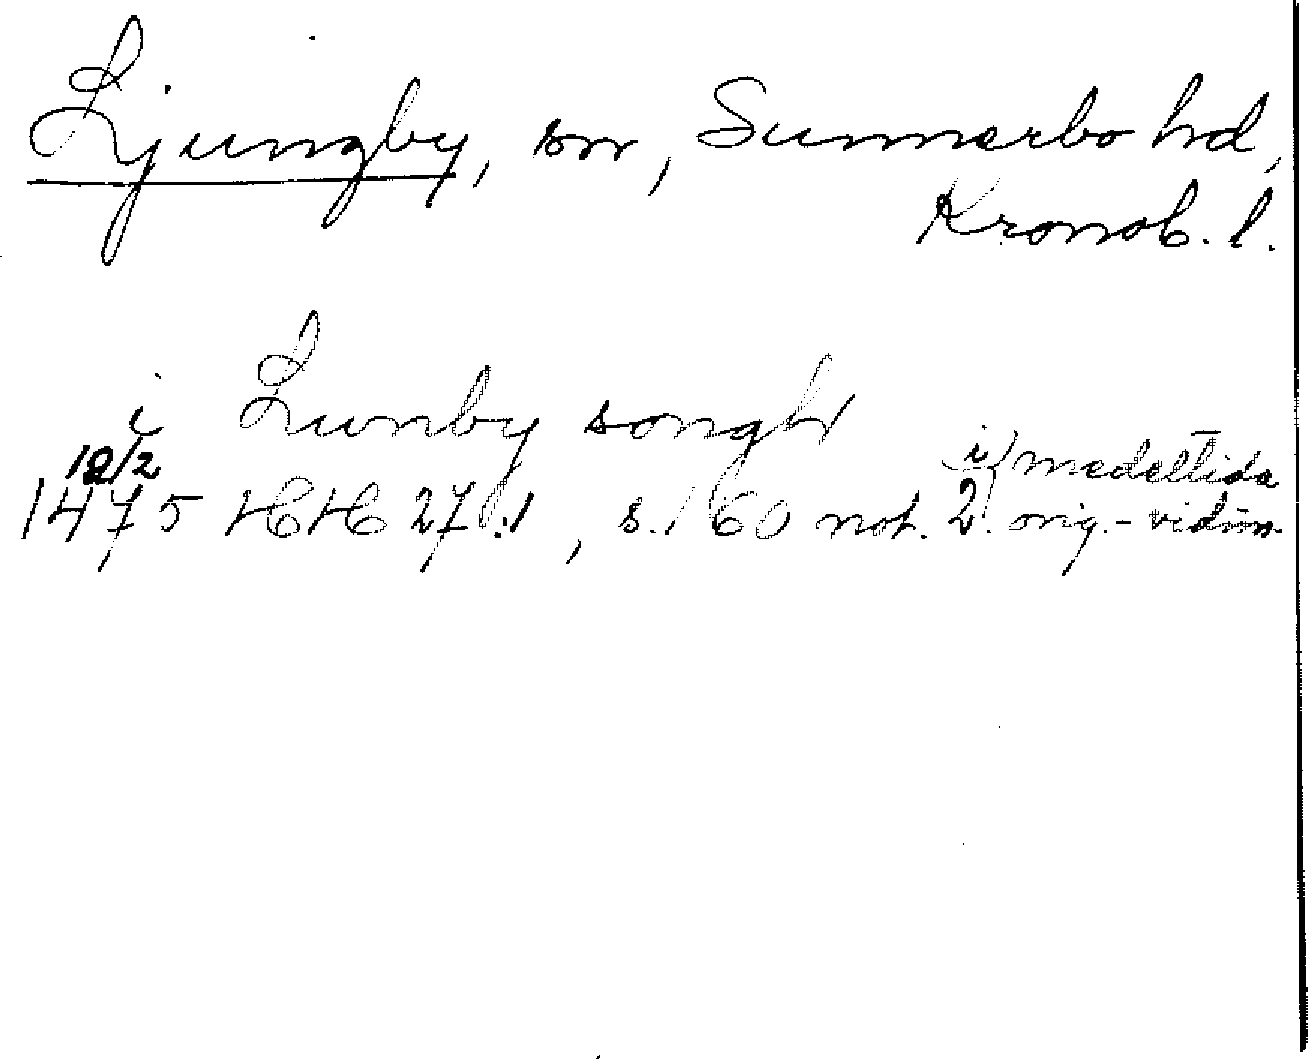 Ljungby, sn, Sunnerbo hd,
Kronob. l.
i Lunby songh
18/2 i medeltida
1475 HH 27:1, s. 160 not. 2. orig.-vidim.